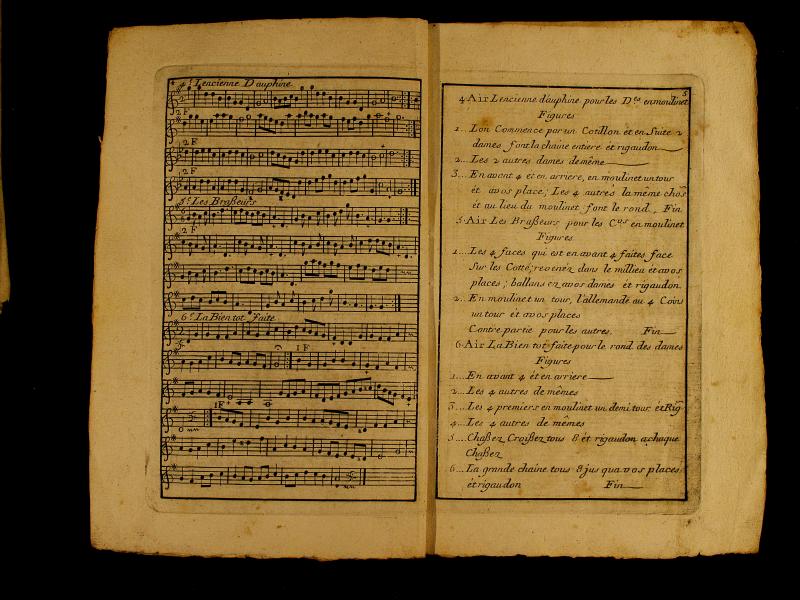 4.e Lencienne Dauphine
2 F
2 F
2 F
5.e Les Braßeurs
2 F
6.e La Bien tot faite
1 F
1F
5
4 Air Lencienne dauphine pour les D.es en moulinet
Figures
1... Lon Commence par un Cotillon et en Suite 2
dames font la chaine entiere et rigaudon
2... Les 2 autres dames de même
3... En avant 4 et en arriere, en moulinet un tour
et avos place; Les 4 autres la même chos
et au lieu du moulinet font le rond. Fin
5 Air Les Braßeurs pour les C.ers en moulinet
Figures
1... Les 4 faces qui est en avant 4 faites face
Sur les Cotté; revenéz dans le millieu et avos
places; ballans en avos dames et rigaudon.
2.. En moulinet un tour, l'allemande au 4 Coins
un tour et avos places
Contre partie pour les autres. Fin
6 Air La Bien tot faite pour le rond des dames
Figures
1... En avant 4 et en arriere
2... Les 4 autres de mêmes
3... Les 4 premiers en moulinet un demi tour et Rig
4... Les 4 autres de mêmes
5... Chaßez Croißez tous 8 et rigaudon a chaque
Chaßez
6... La grande chaine tous 8 jus qua vos places
et rigaudon Fin